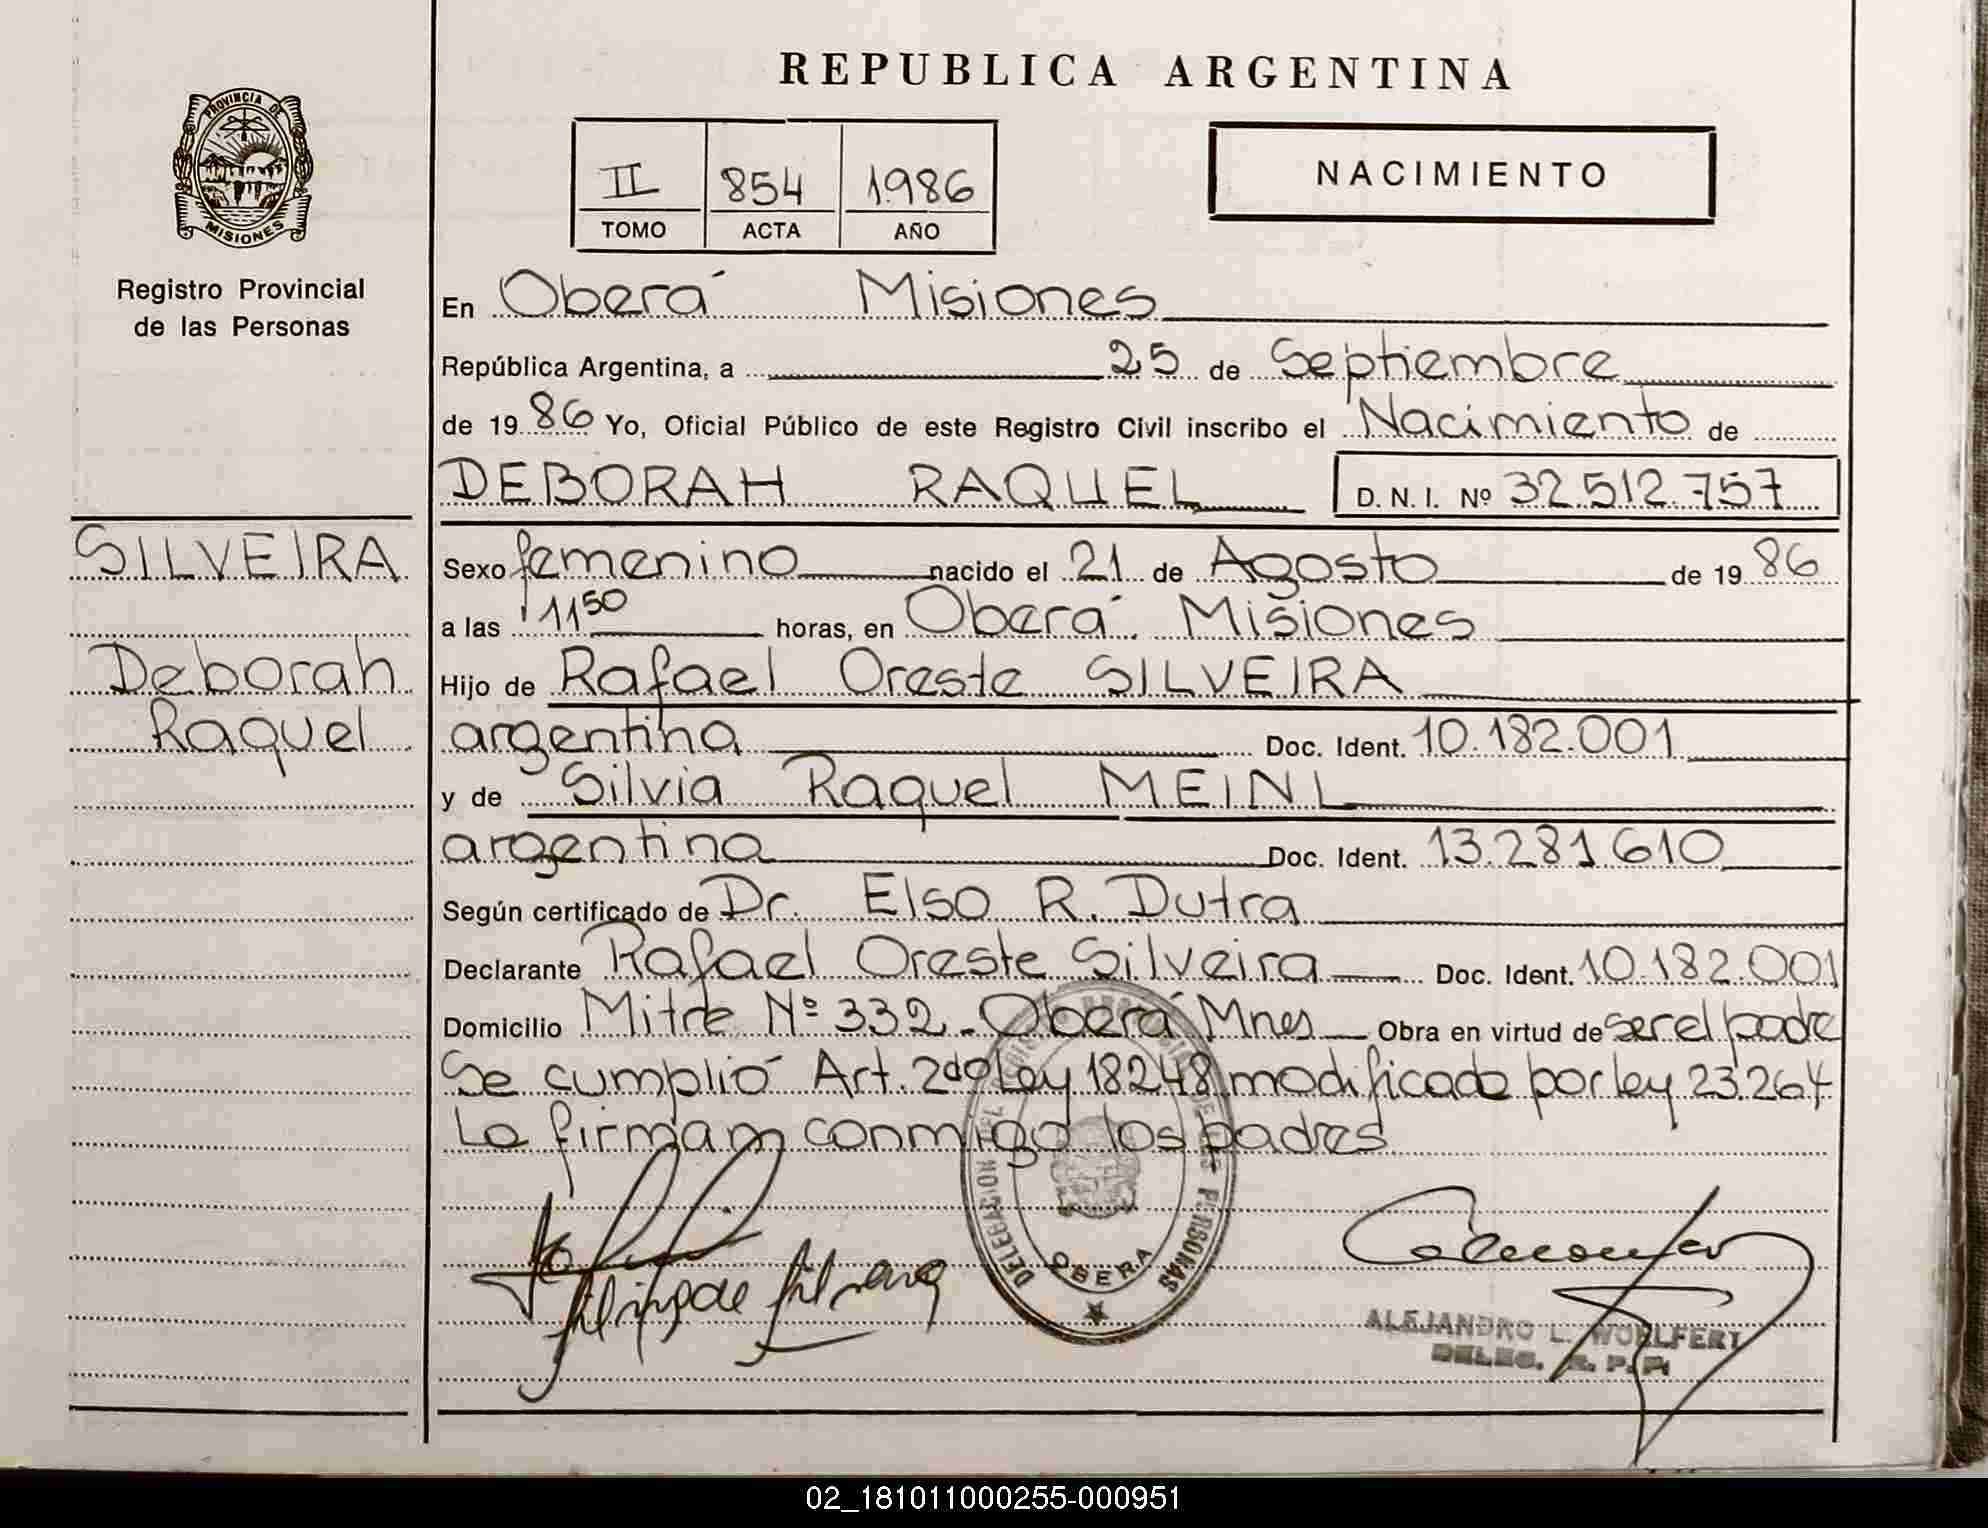 REPUBLICA ARGENTINA
PROVINCIA DE
MISIONES
Registro Provincial
de las Personas
II 854 1986
TOMO ACTA AÑO
NACIMIENTO
En Oberá Misiones
República Argentina, a 25 de Septiembre
de 1986 Yo, Oficial Público de este Registro Civil inscribo el Nacimiento de
DEBORAH RAQUEL D. N. I. Nº 32.512.757
SILVEIRA
Deborah
Raquel
Sexo femenino nacido el 21 de Agosto de 1986
a las 11 50 horas, en Oberá Misiones
Hijo de Rafael Oreste SILVEIRA
argentina Doc. Ident. 10.182.001
y de Silvia Raquel MEINL
argentina Doc. Ident. 13.281.610
Según certificado de Dr. Elso R. Dutra
Declarante Rafael Oreste Silveira Doc. Ident. 10.182.001
Domicilio Mitre Nº 332 - Oberá Mnes Obra en virtud de ser el padre
Se cumplió Art. 2do Ley 18248 modificado por ley 23.264
La firman conmigo los padres
DELEGACION PERSONAS
OBERA
ALEJANDRO L. WOHLFERT
DELEG. R. P. P.
02_181011000255-000951